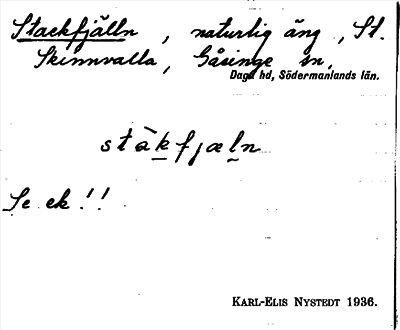 Stackfjälln, naturlig äng, St.
Skinnvalla, Gåsinge sn,
Daga hd, Södermanlands län.
stàk̲fjæl̲n
Se ek!!
KARL-ELIS NYSTEDT 1936.